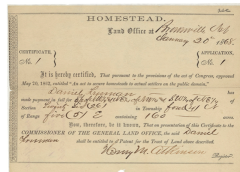 HOMESTEAD.
Land Office at Brownville Neb
January 20th 1868.
CERTIFICATE
No 1
APPLICATION
No 1
It is hereby certified, That pursuant to the provisions of the act of Congress, approved
May 20, 1862, entitled "An act to secure homesteads to actual settlers on the public domain,"
Daniel Freeman has
made payment in full for of
Section in Township
of Range Five (5) E containing 160 acres
Now, therefore, be it known, That on presentation of this Certificate to the
COMMISSIONER OF THE GENERAL LAND OFFICE, the said Daniel
Freeman shall be entitled to a Patent for the Tract of Land above described.
Henry M. Atkinson
Register.